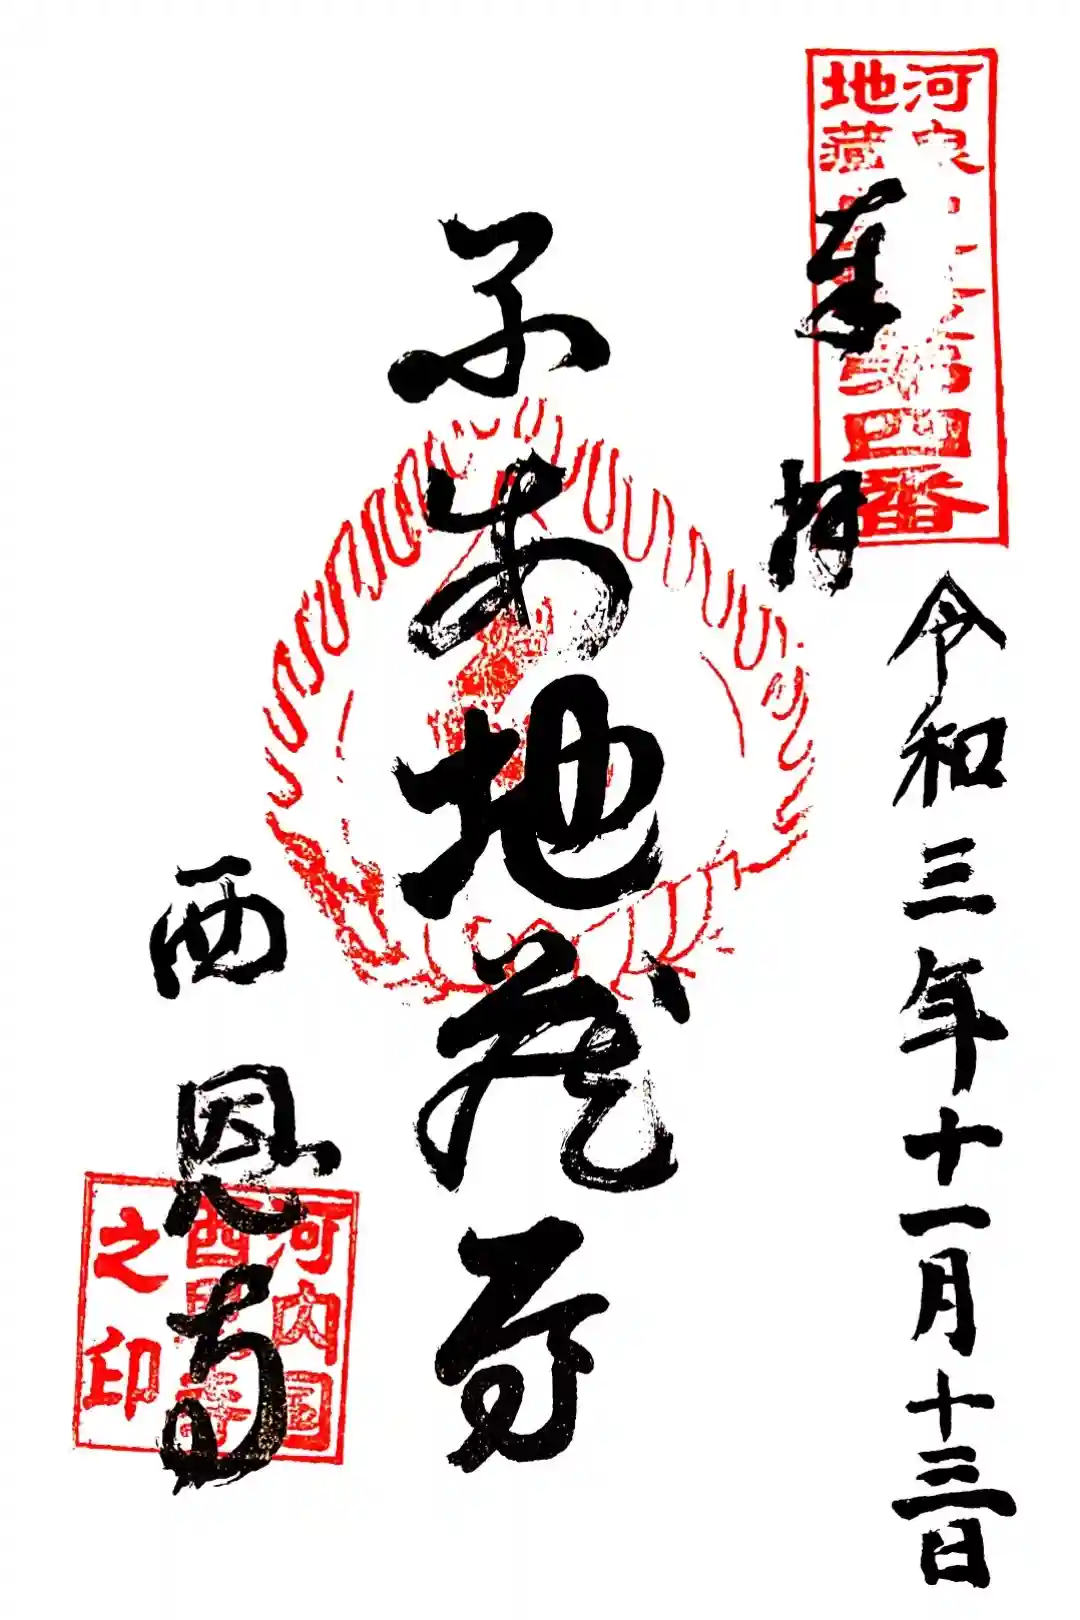 河泉
地藏
第四番
奉拝
令和三年十一月十三日
子安地蔵尊
西恩寺
河内国
西恩寺
之印